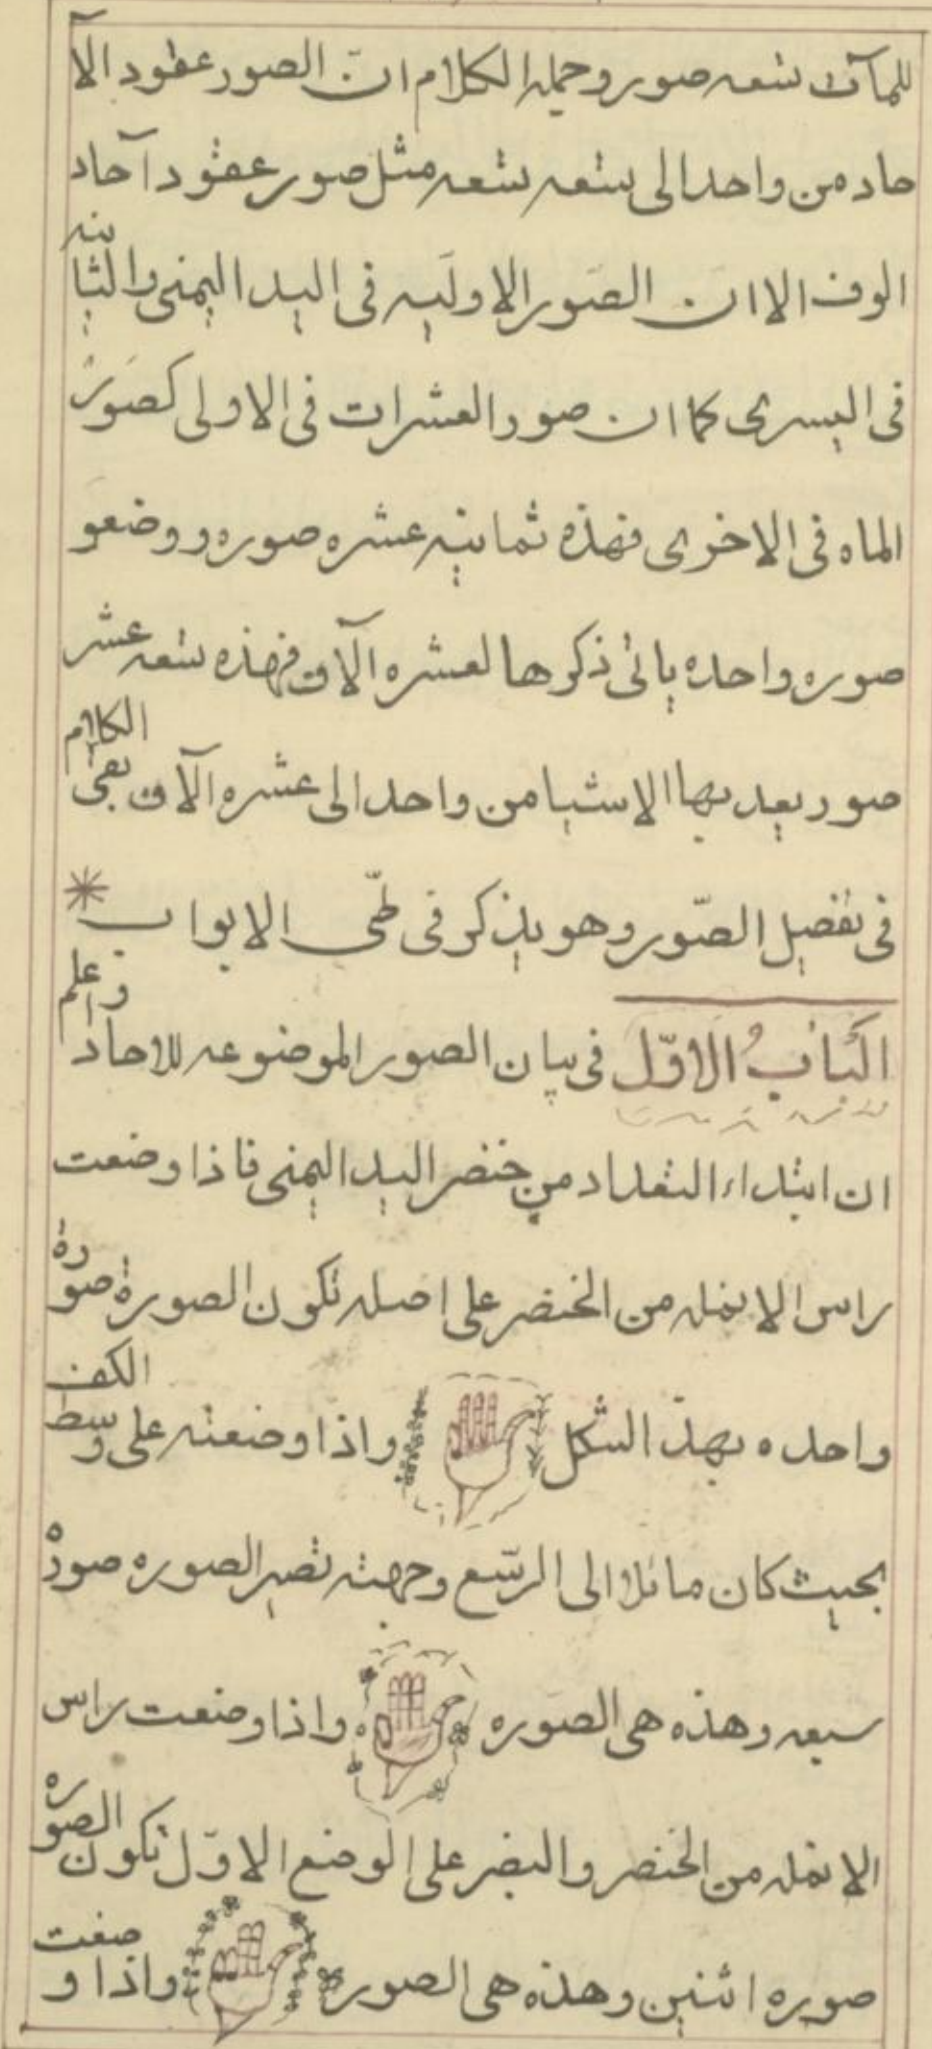 للمآت تسعه صور وجمله الكلام انّ الصور عقود الآ
حاد من واحد الى تسعه تسعه مثل صور عقود آحاد
الوف الا ان الصور الاوليه فى اليد اليمنى والثانيه
فى اليسرى كما ان صور العشرات فى الاولى كصور
الماه فى الاخرى فهذه ثمانيه عشره صوره ووضعو
صوره واحده ياتى ذكرها لعشره الآف فهذه تسعه عشر
صور يعد بها الاشيا من واحد الى عشره الآف بقى الكلام
فى تفصيل الصّور وهو يذكر فى طىّ الابواب
الباب الاوّل فى بيان الصور الموضوعه للاحاد واعلم
ان ابتداء التعداد من خنصر اليد اليمنى فاذا وضعت
راس الانمله من الخنصر على اصله تكون الصورة صورة
واحده بهذ الشكل واذا وضعته على وسط الكف
بحيث كان مائلا الى الرسّع وجهته تصير الصوره صورة
سبعه وهذه هى الصوره واذا وضعت راس
الانمله من الخنصر والبنصر على الوضع الاوّل تكون الصوره
صوره اثنين وهذه هى الصور واذا وضعت